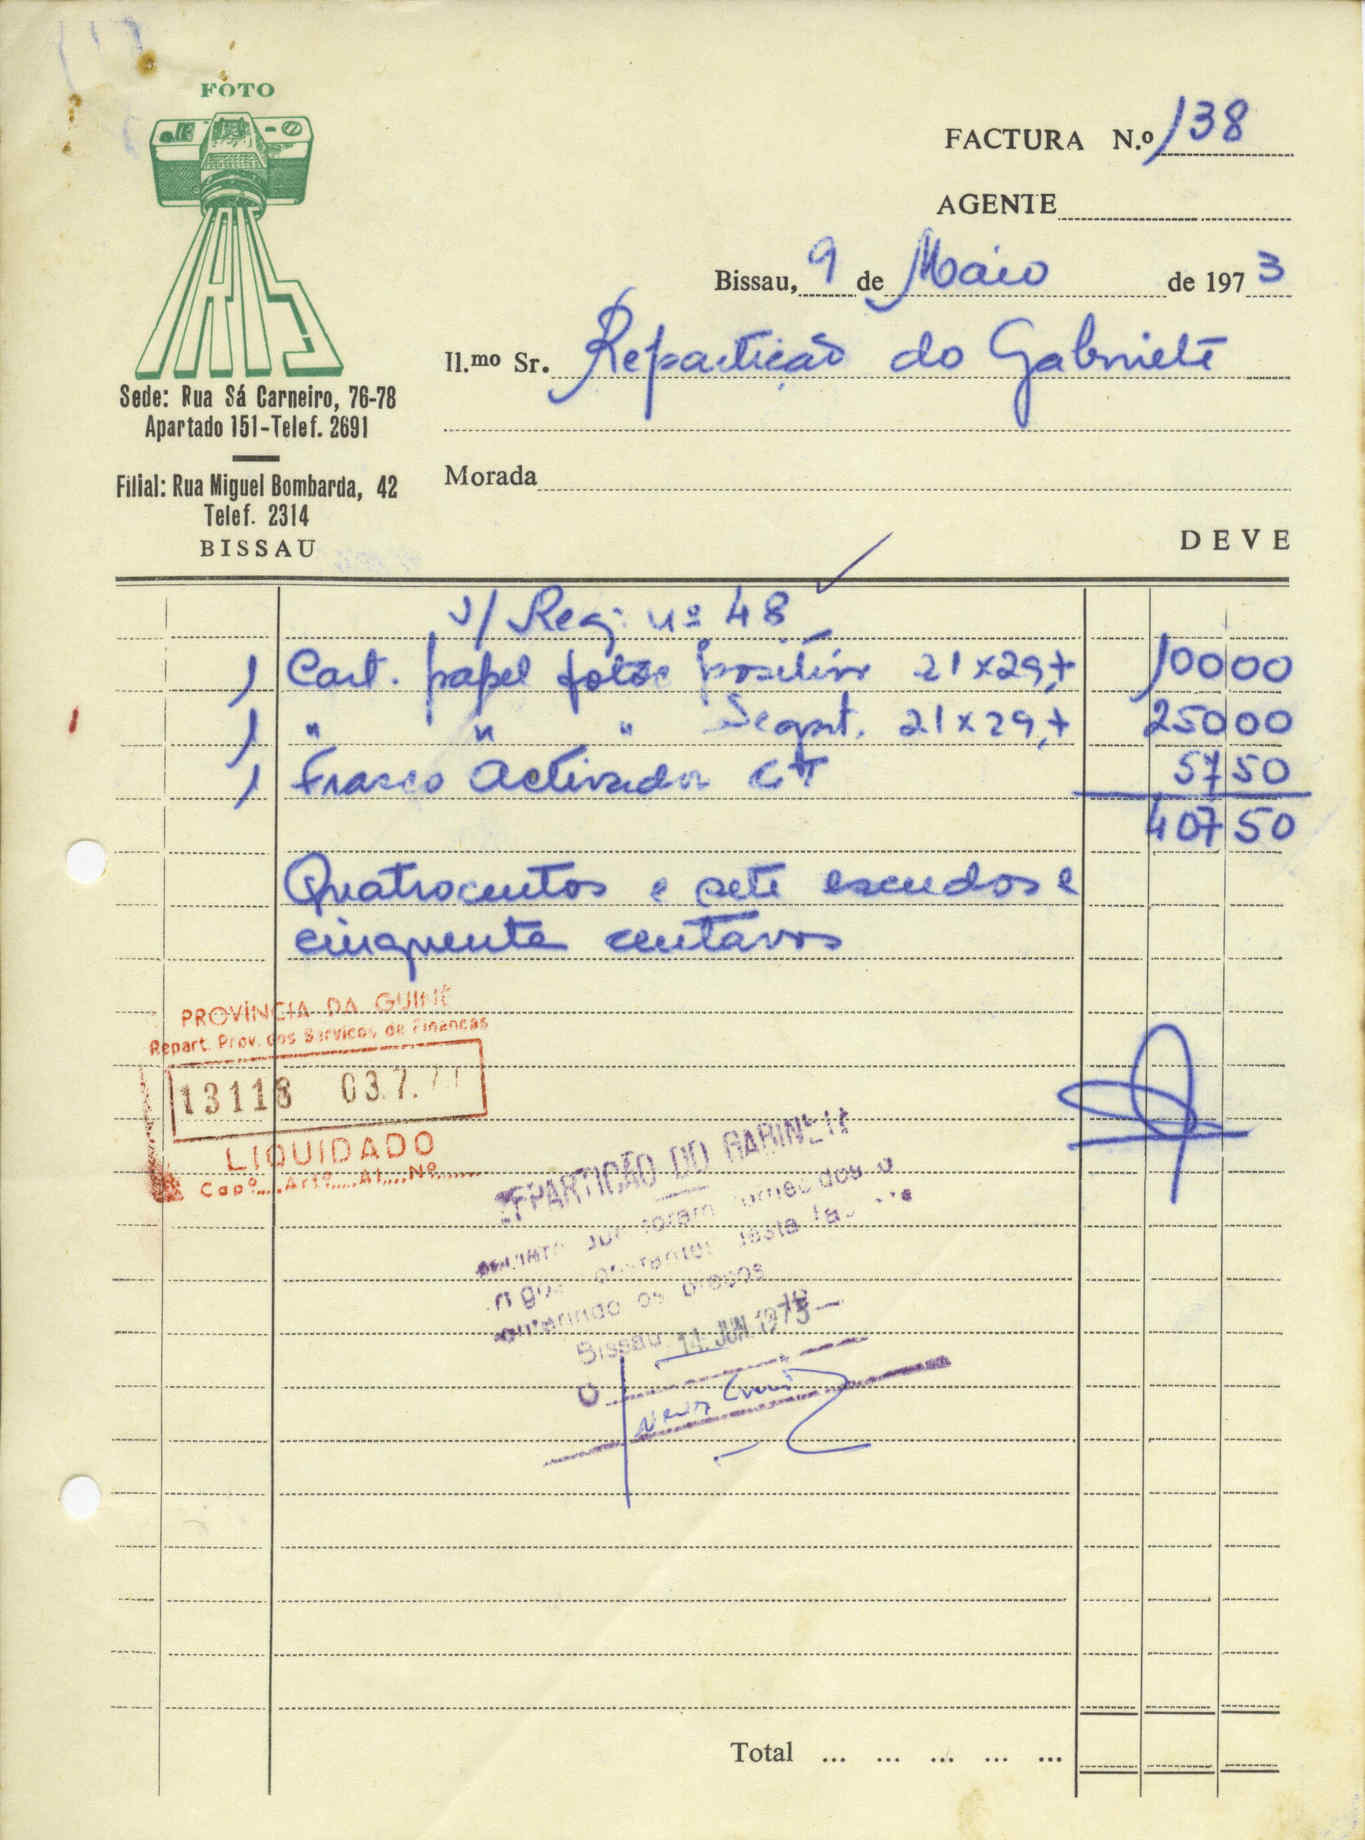 FOTO
IRIS
Sede: Rua Sá Carneiro, 76-78
Apartado 151-Telef. 2691
Filial: Rua Miguel Bombarda, 42
Telef. 2314
BISSAU
FACTURA N.º 138
AGENTE
Bissau, 9 de Maio de 1973
Il.mo Sr. Repartição do Gabinete
Morada
DEVE
v/ Req. nº 48
1 Cart. papel fotoc positivo 21x29,7 100 00
1 " " " Negat. 21x29,7 250 00
1 Frasco Activador CT 57 50
407 50
Quatrocentos e sete escudos e
cinquenta centavos
PROVÍNCIA DA GUINÉ
Repart. Prov. dos Serviços de Finanças
13118 03.7.
LIQUIDADO
Capº.... Artº.... Al.... Nº
REPARTIÇÃO DO GABINETE
que foram fornecidos o
desta
os preços
Bissau, 14. JUN. 1973
O
Total ... ... ... ... ...